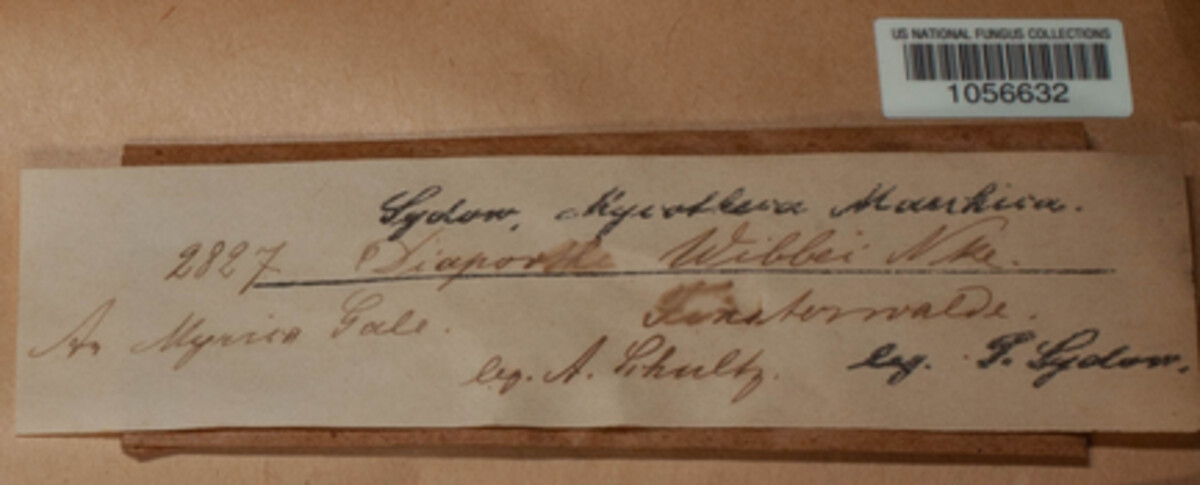 US NATIONAL FUNGUS COLLECTIONS
1056632
Sydow, Mycotheca Marchica.
2827 Diaporthe Wibbei Nke.
An Myrica Gale. Finsterwalde.
leg. A. Schultz. leg. P. Sydow.